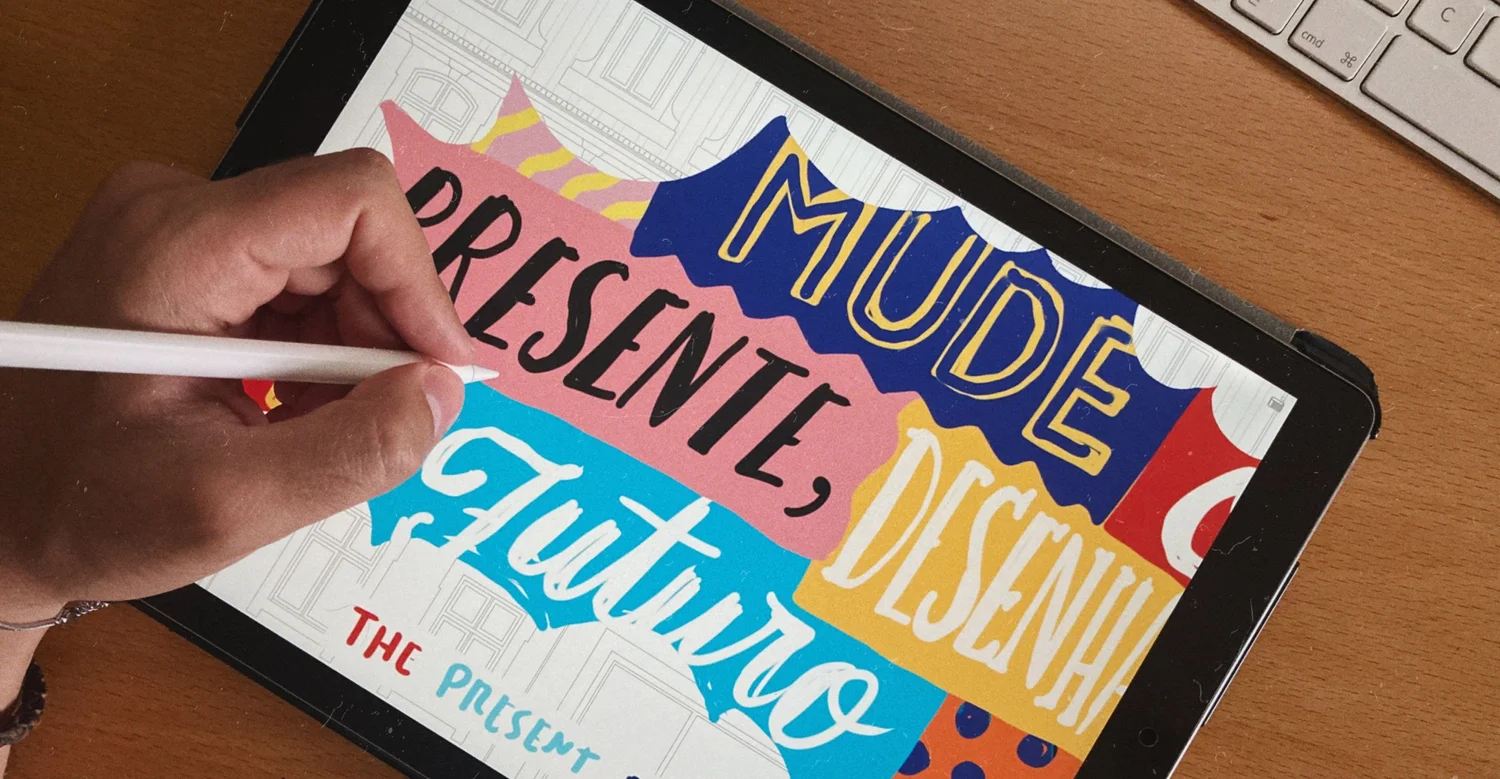 MUDE
PRESENTE, DESENHA
Futuro
THE PRESENT
cmd ⌘
C